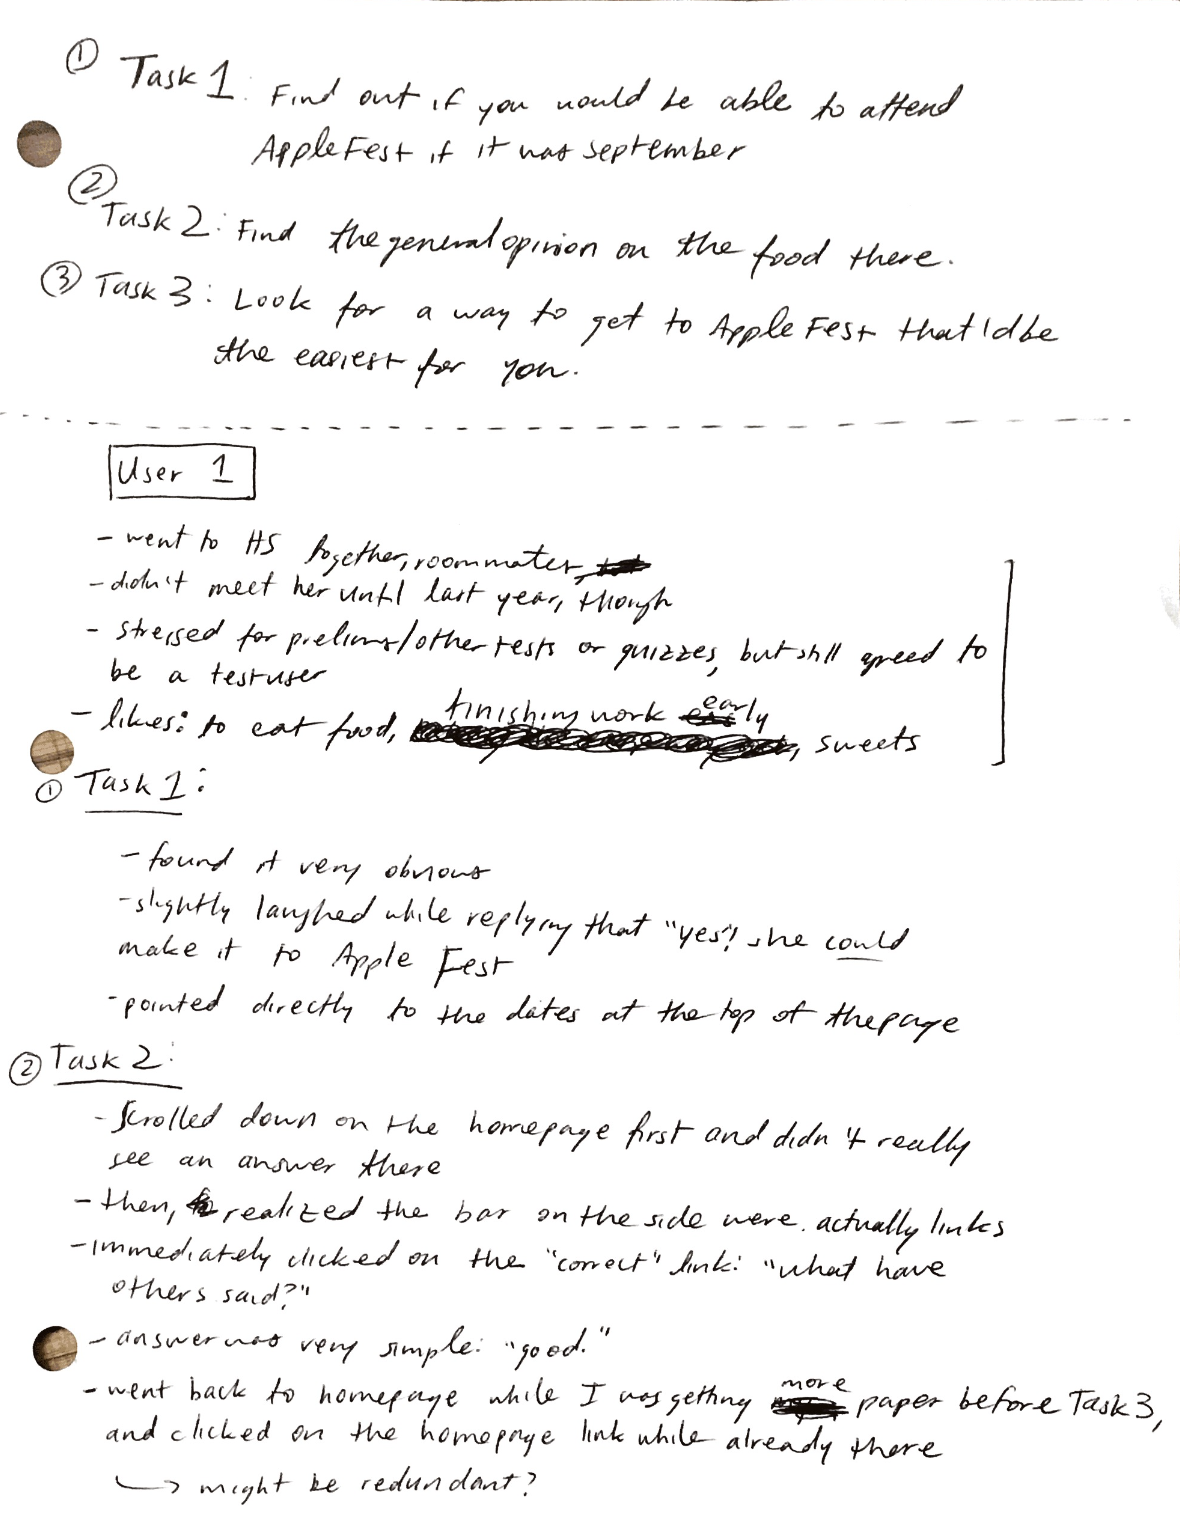 ① Task 1: Find out if you would be able to attend
AppleFest if it was september
② Task 2: Find the general opinion on the food there.
③ Task 3: Look for a way to get to AppleFest that'd be
the easiest for you.
User 1
- went to HS together, roommates,
- didn't meet her until last year, though
- stressed for prelims/other tests or quizzes, but still agreed to
be a test user
- likes: to eat food, finishing work early, sweets
① Task 1:
- found it very obvious
- slightly laughed while replying that "yes", she could
make it to Apple Fest
- pointed directly to the dates at the top of the page
② Task 2:
- Scrolled down on the homepage first and didn't really
see an answer there
- then, realized the bar on the side were actually links
- immediately clicked on the "correct" link: "what have
others said?"
- answer was very simple: "good."
- went back to homepage while I was getting more paper before Task 3,
and clicked on the homepage link while already there
↳ might be redundant?